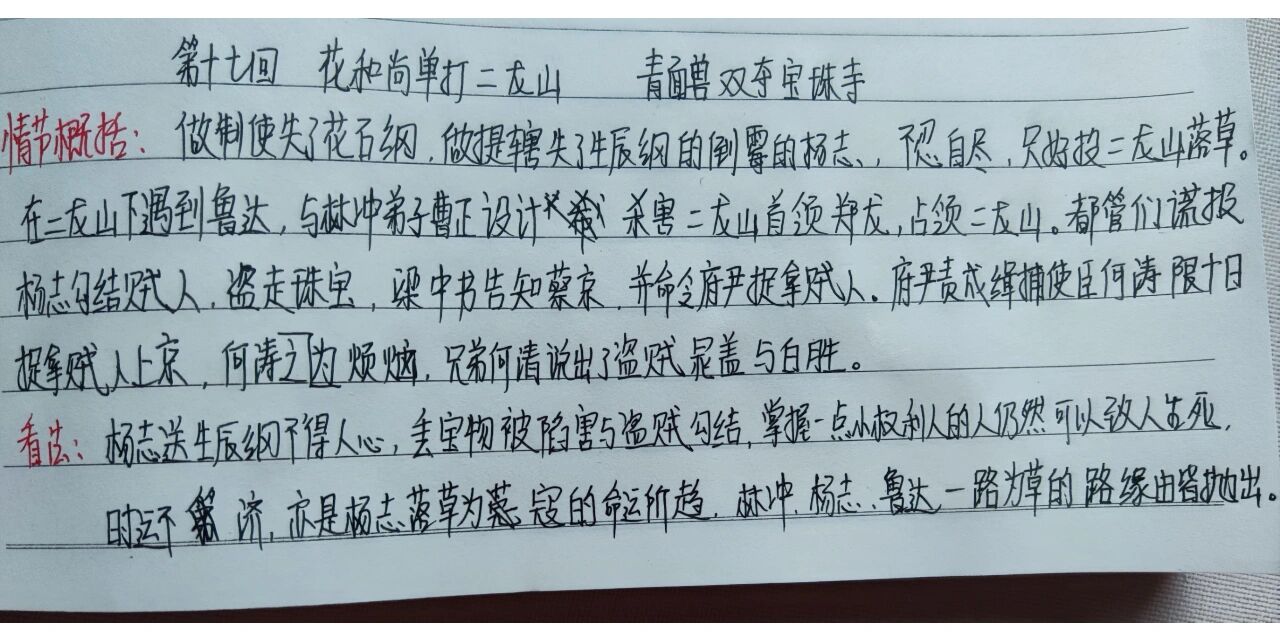 第十七回 花和尚单打二龙山 青面兽双夺宝珠寺
情节概括：做制使失了花石纲，做提辖失了生辰纲的倒霉的杨志，不忍自尽，只好投二龙山落草。
在二龙山下遇到鲁达，与林冲弟子曹正设计杀害二龙山首领郑龙，占领二龙山。都管们谎报
杨志勾结贼人，盗走珠宝，梁中书告知蔡京，并命令府尹捉拿贼人。府尹责成缉捕使臣何涛限十日
捉拿贼人上京，何涛正为烦恼，兄弟何清说出了盗贼晁盖与白胜。
看法：杨志送生辰纲不得人心，丢宝物被陷害与盗贼勾结，掌握一点小权利人的人仍然可以致人生死，
时运不济，亦是杨志落草为寇的命运所趋，林冲、杨志、鲁达一路为草的路缘由皆抛出。